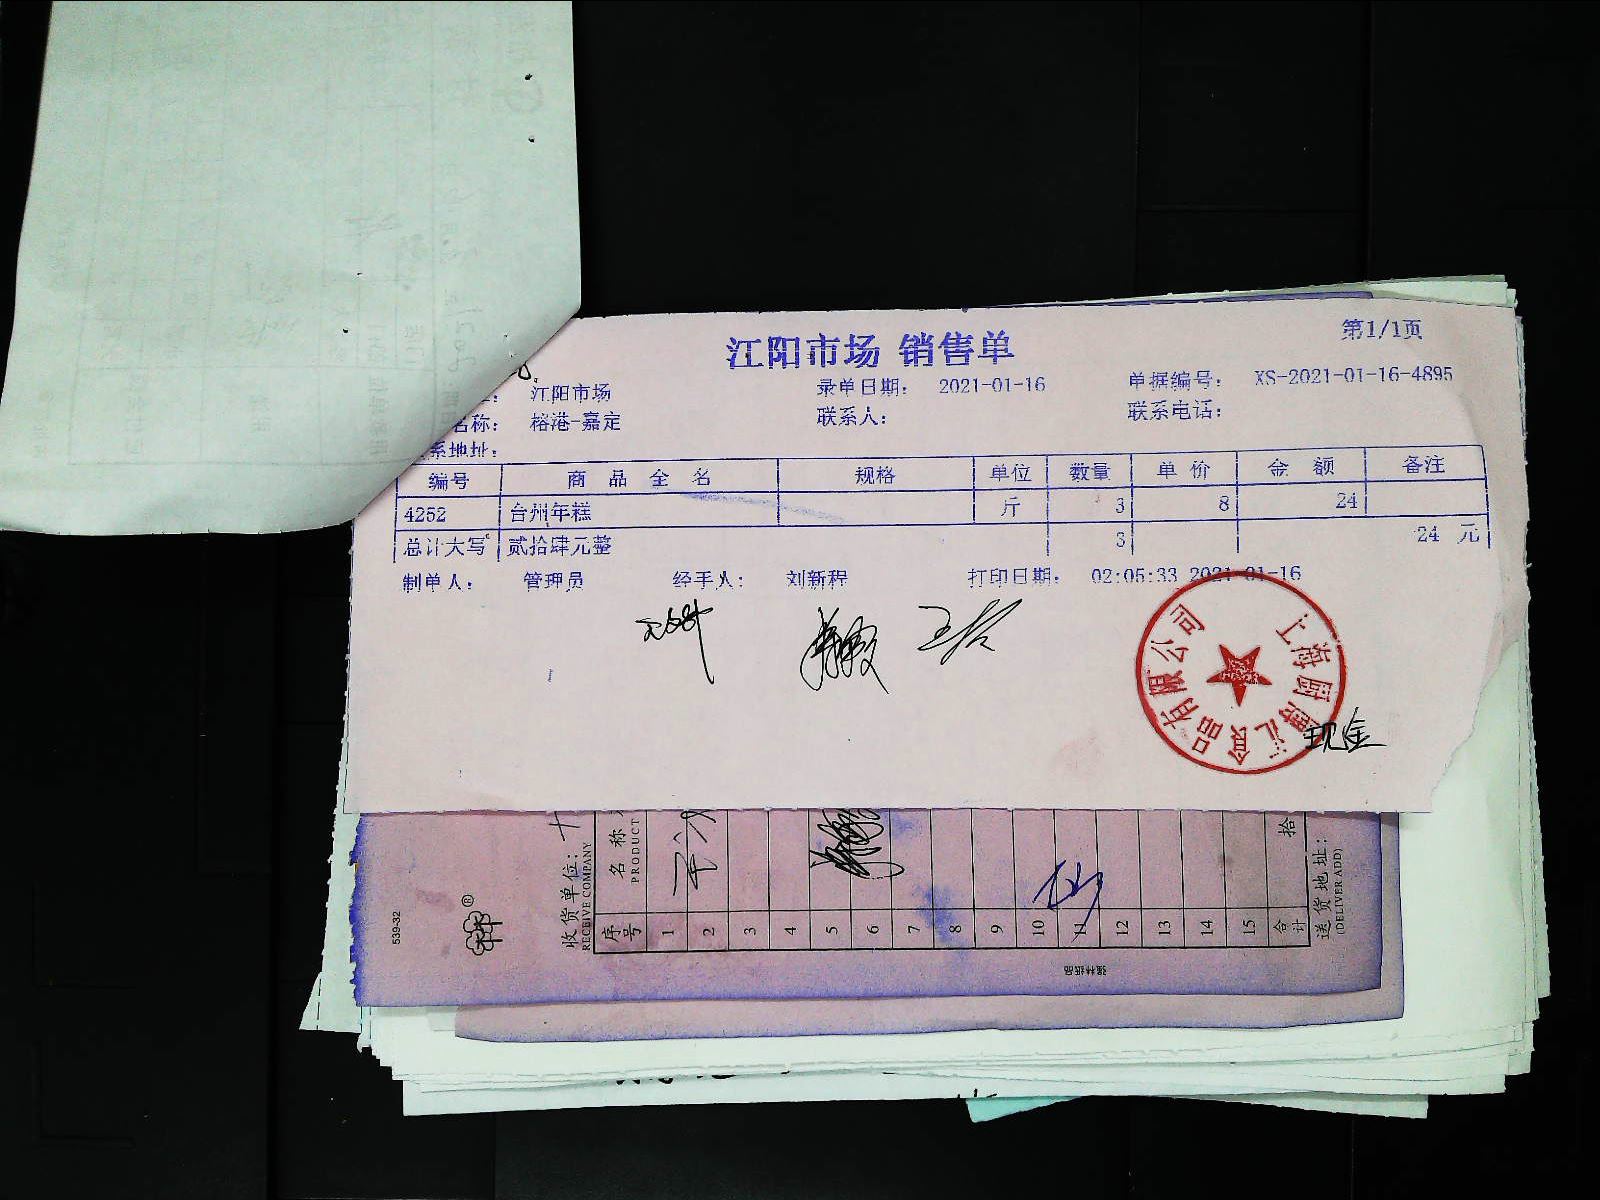 江阳市场 销售单
第1/1页
江阳市场 录单日期: 2021-01-16 单据编号: XS-2021-01-16-4895
名称: 榕港-嘉定 联系人: 联系电话:
系地址:
编号 商品全名 规格 单位 数量 单价 金额 备注
4252 台州年糕 斤 3 8 24
总计大写 贰拾肆元整 3 24 元
制单人: 管理员 经手人: 刘新程 打印日期: 02:05:33 2021-01-16
品有限公司
上海
现金
收货单位:
RECEIVE COMPANY
序号 名称
PRODUCT
1 2 3 4 5 6 7 8 9 10 11 12 13 14 15 合计
拾
送货地址:
(DELIVER ADD)
539-32